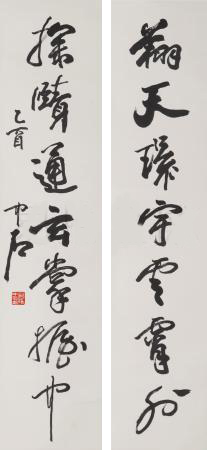 翱天環宇雲霄外
探賾通玄掌握中
乙酉
中石